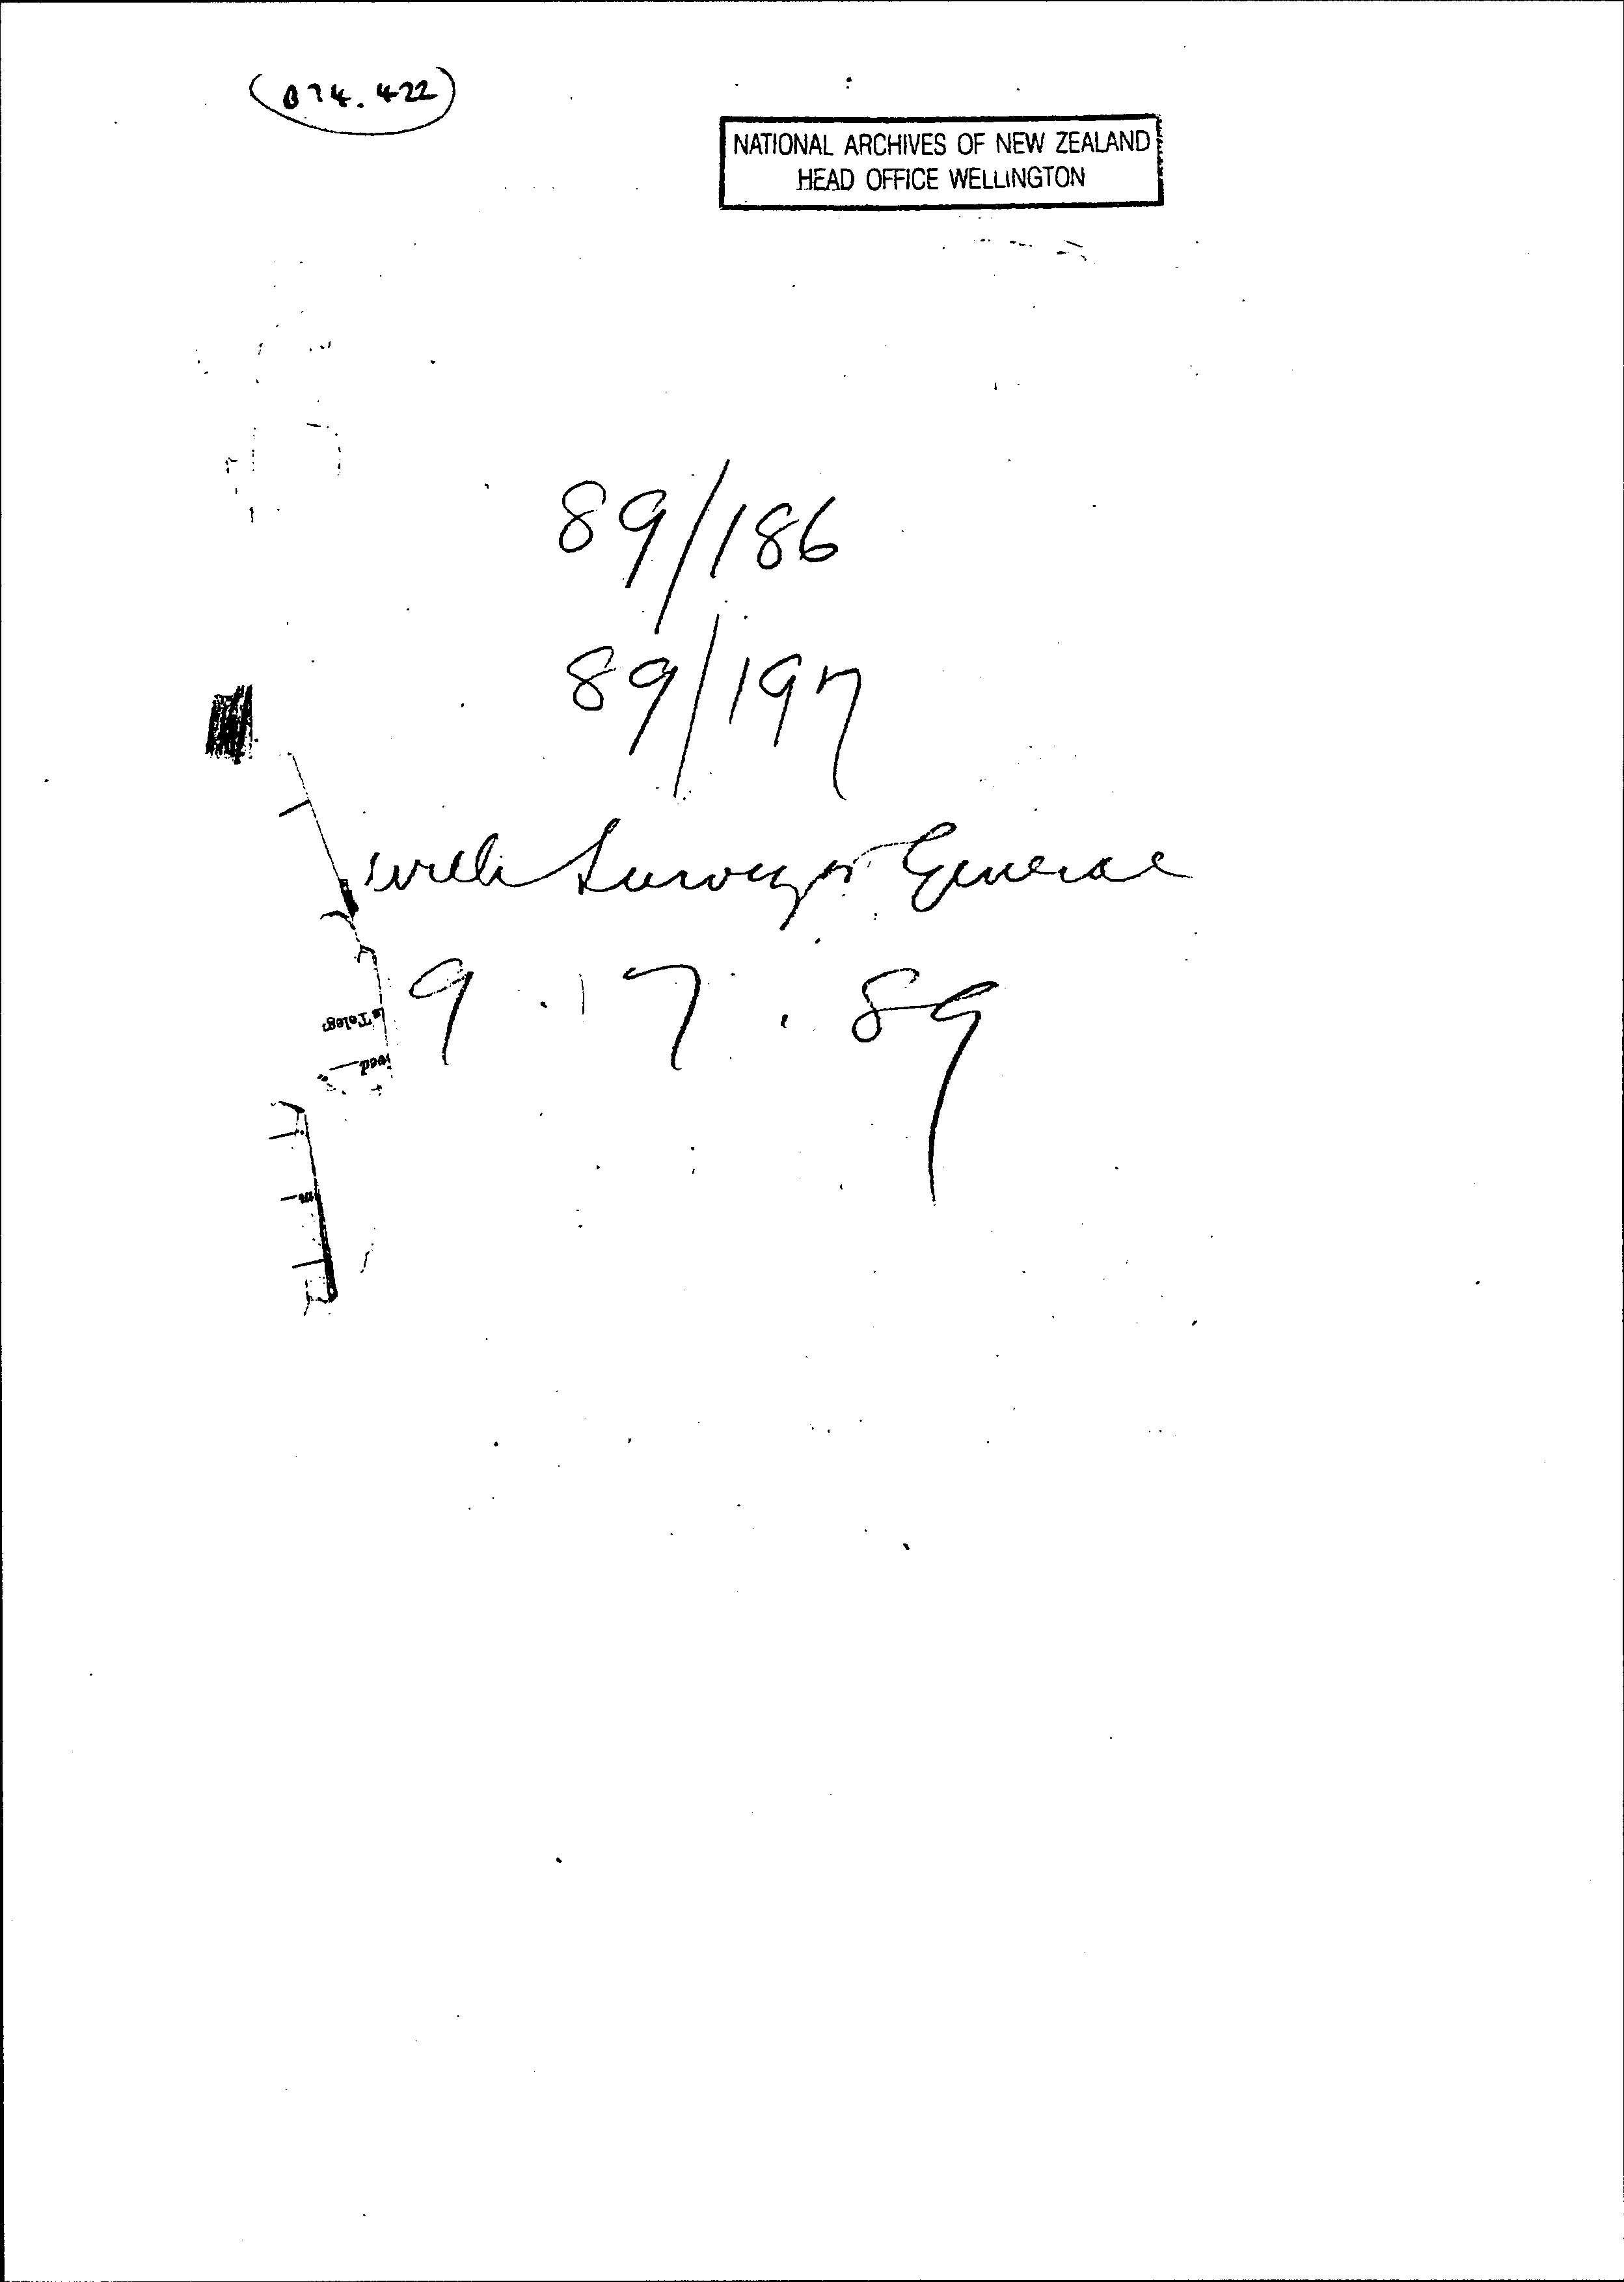 (B74.422)
NATIONAL ARCHIVES OF NEW ZEALAND
HEAD OFFICE WELLINGTON
89/186
89/197
with Surveyor General
9.17.89